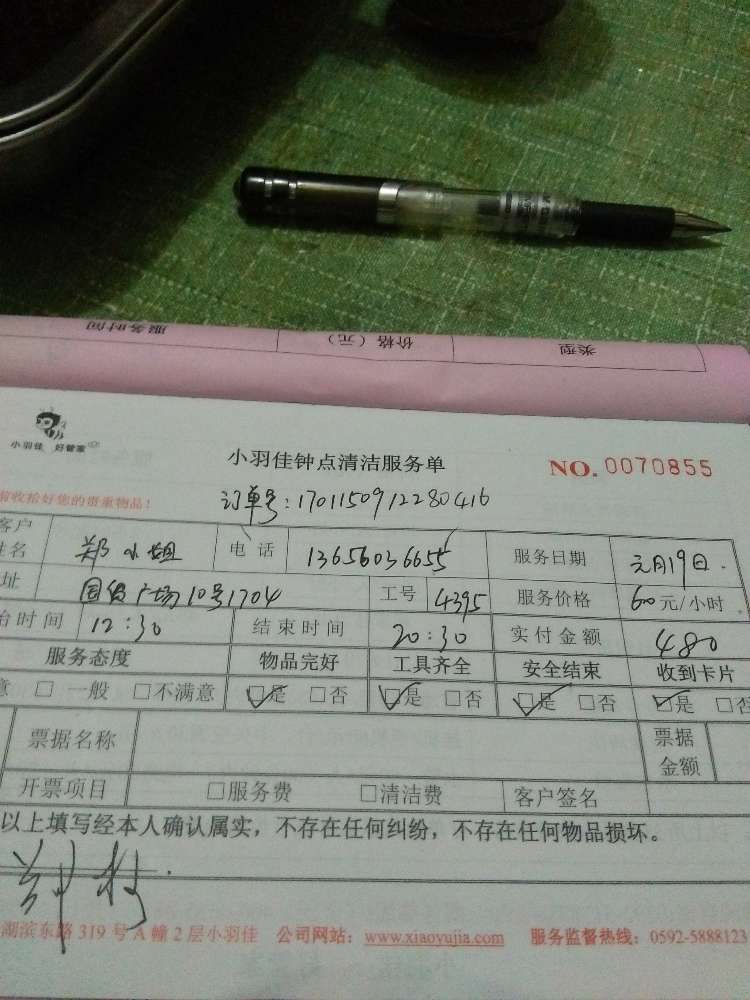 类型 价格（元） 服务时间
小羽佳 好管家
小羽佳钟点清洁服务单 NO. 0070855
收拾好您的贵重物品！ 订单号：1701150912280416
客户姓名 郑小姐 电话 13656036655 服务日期 元月19日
址 国贸广场10号1704 工号 4395 服务价格 60元/小时
时间 12:30 结束时间 20:30 实付金额 480
服务态度 物品完好 工具齐全 安全结束 收到卡片
意 □一般 □不满意 □是 □否 □是 □否 □是 □否 □是 □否
票据名称 票据金额
开票项目 □服务费 □清洁费 客户签名
以上填写经本人确认属实，不存在任何纠纷，不存在任何物品损坏。
湖滨东路319号A幢2层小羽佳 公司网站：www.xiaoyujia.com 服务监督热线：0592-5888123